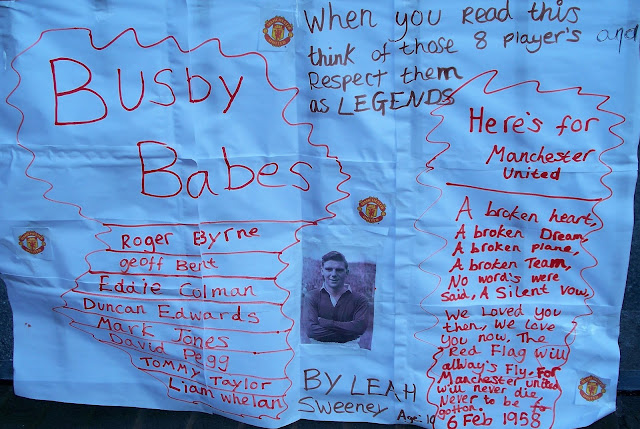 When you Read this
think of those 8 player's and
Respect them
as LEGENDS
Busby
Babes
Roger Byrne
geoff Bent
Eddie Colman
Duncan Edwards
Mark Jones
David Pegg
Tommy Taylor
Liam whelan
Here's for
Manchester
United
A broken heart,
A broken Dream,
A broken plane,
A broken Team,
No word's were
said, A Silent vow,
We Loved you
then, We love
you now, The
Red Flag will
allway's Fly, For
Manchester united
will never die,
Never to be fo
gotton.
6 Feb 1958
BY LEAH
Sweeney Age: 10